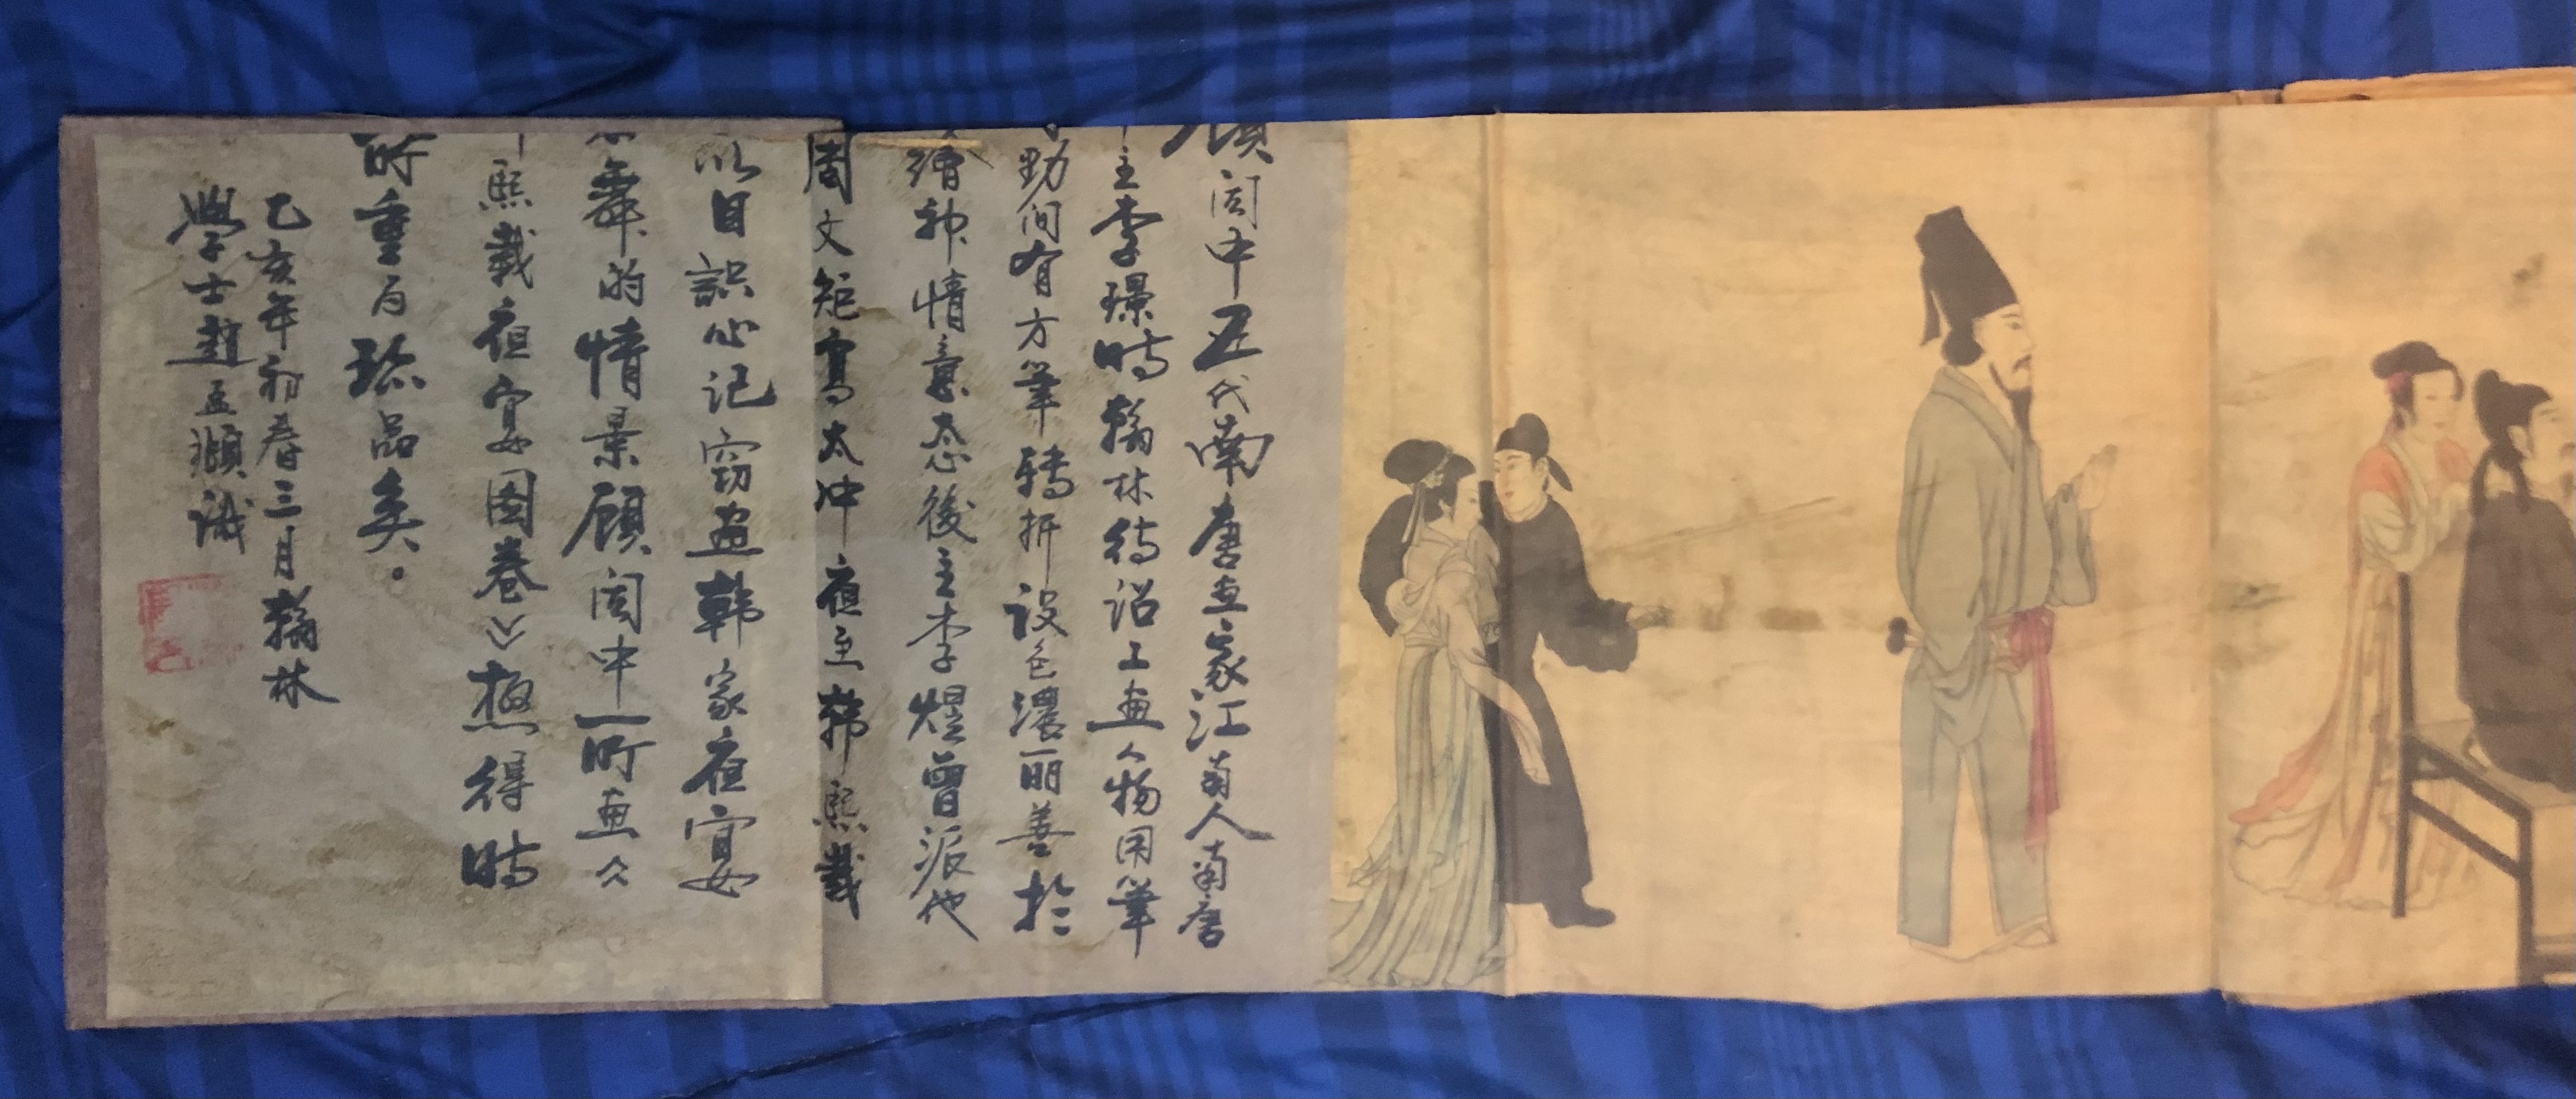 顾闳中五代南唐画家江南人南唐
中主李璟時翰林待诏工画人物用筆
劲间有方筆转折设色濃丽善於
繪神情意态後主李煜曾派他
周文矩寫太冲夜至韩熙载
以目识心记窃画韩家夜宴
舞的情景顾闳中所画
熙载夜宴图卷極得時
所重为珎品矣。
乙亥年初春三月翰林
學士趙孟頫识